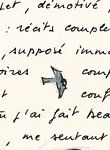 let, démotivé,
: récits comple
, supposé imm
oires comp
t conf
u j'ai fait bea
, me sentant